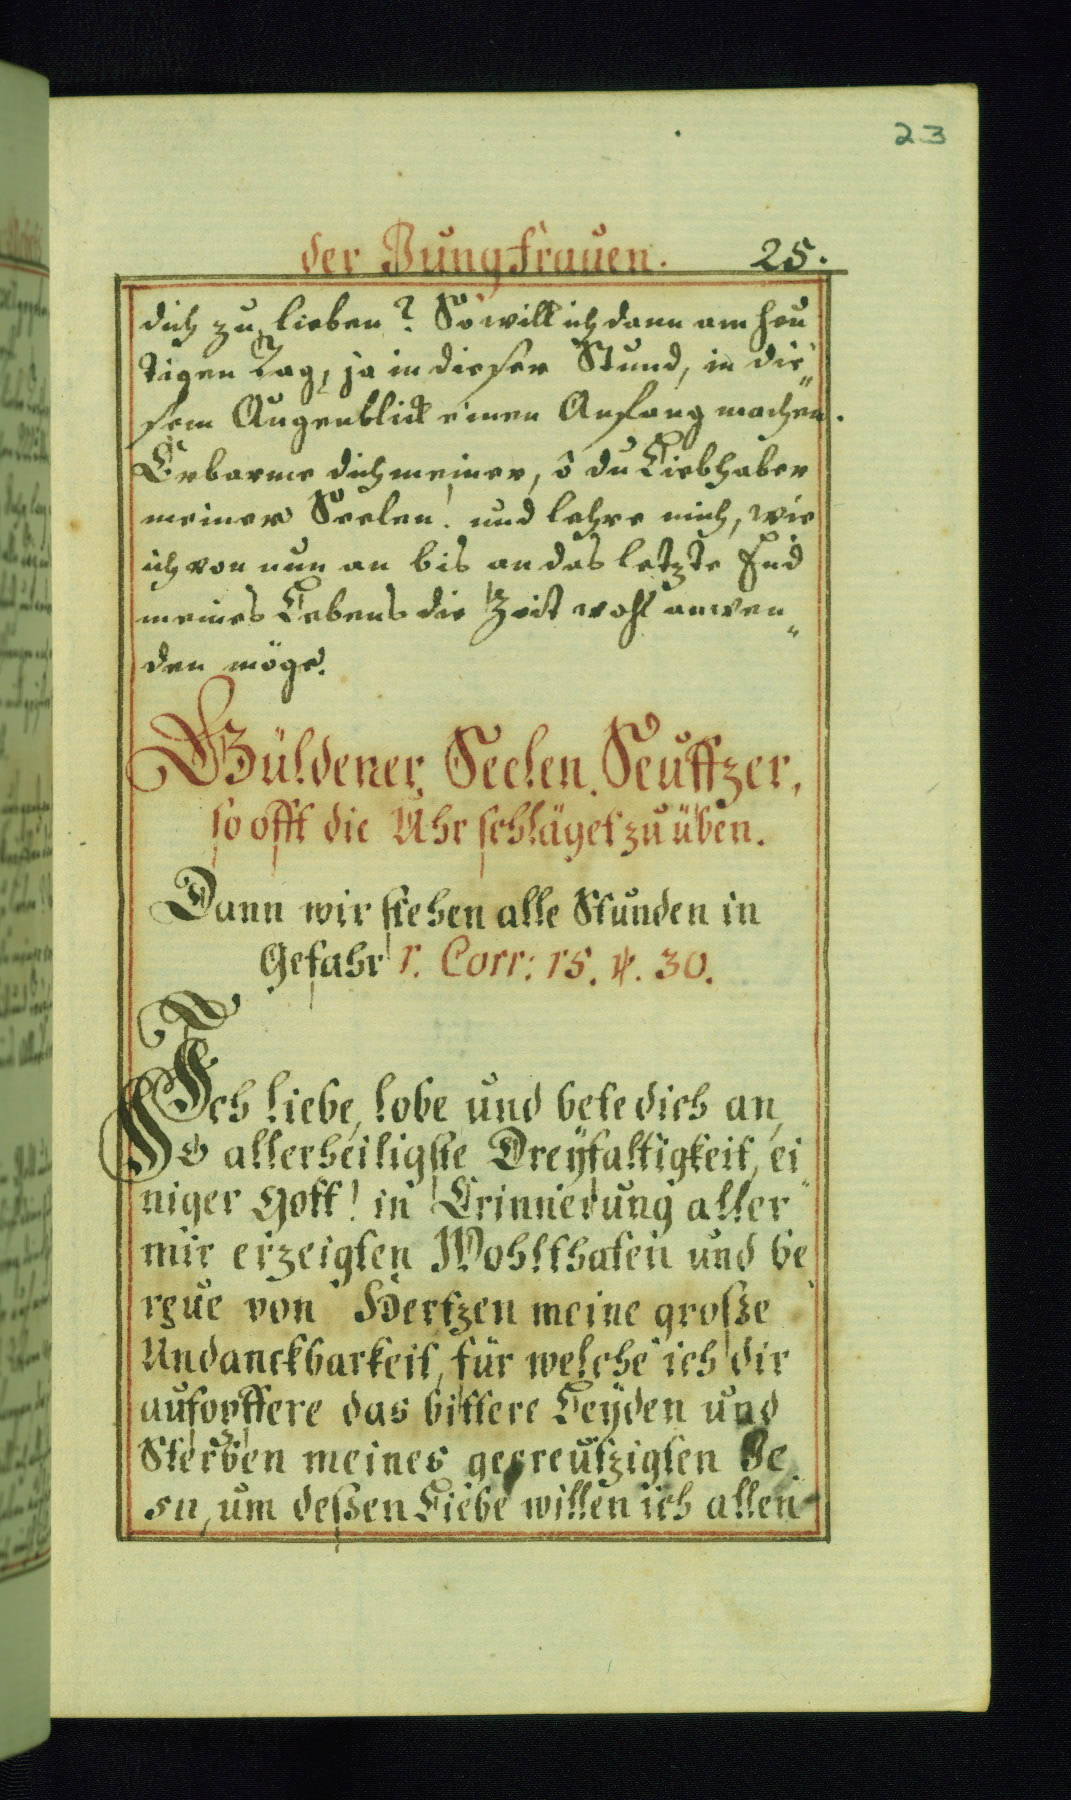 23
der Jungfrauen. 25.
dich zu lieben? So will ich dann am heu
tigen Tag, ja in dieser Stund, in die„
sem Augenblick einen Anfang machen.
Erbarme dich meiner, ô du Liebhaber
meiner Seelen! und lehre mich, wie
ich von nun an bis an das letzte End
meines Lebens die Zeit wohl anwen„
den möge.
Güldener Seelen Seuffzer,
so offt die Uhr schläget zu üben.
Dann wir stehen alle Stunden in
Gefahr 1. Corr: 15. ℣. 30.
Ich liebe, lobe und bete dich an,
O allerheiligste Dreÿfaltigkeit, ei
niger Gott! in Erinnerung aller
mir erzeigten Wohlthaten und be
reue von Hertzen meine große
Undanckbarkeit, für welche ich dir
aufopffere das bittere Leÿden und
Sterben meines gecreutzigten Je
su, um deßen Liebe willen ich allen